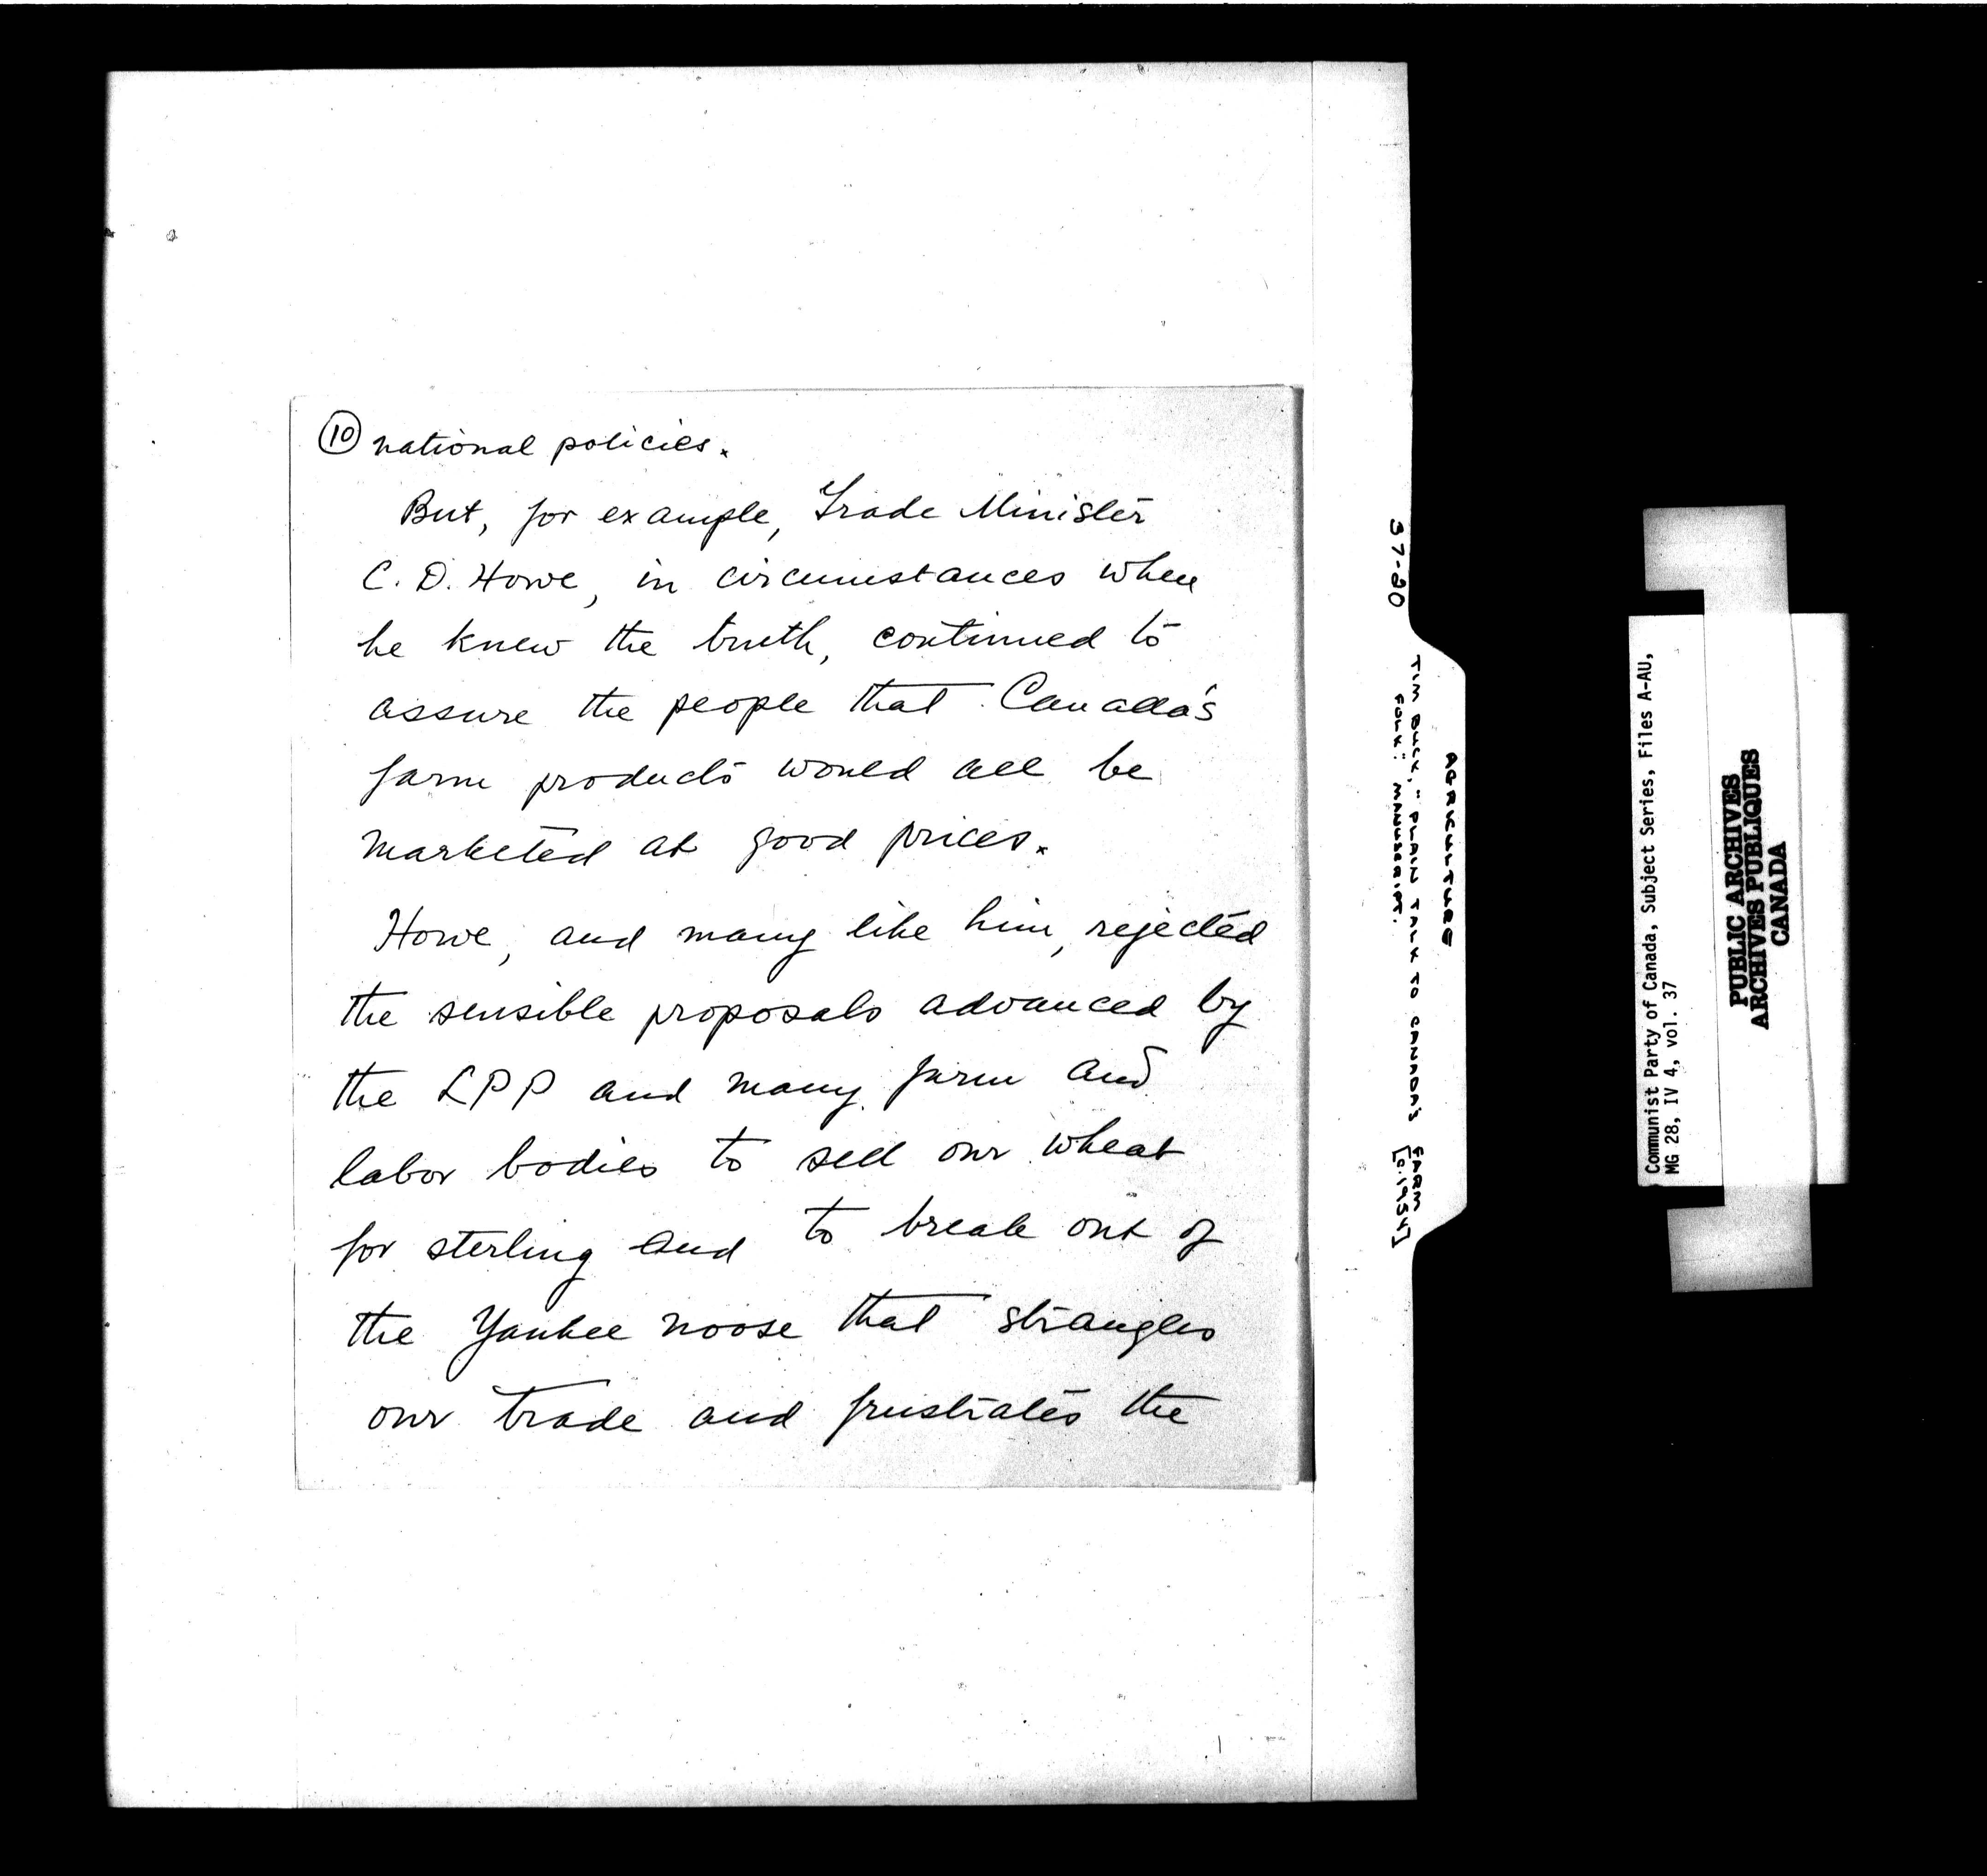 10 national policies.
But, for example, Trade Minister
C. D. Howe, in circumstances when
he knew the truth, continued to
assure the people that Canada's
farm products would all be
marketed at good prices.
Howe, and many like him, rejected
the sensible proposals advanced by
the LPP and many farm and
labor bodies to sell our wheat
for sterling and to break out of
the Yankee noose that strangles
our trade and frustrates the
37-20
AGRICULTURE
TIM BUCK, "PLAIN TALK TO CANADA'S FARM
FOLK": MANUSCRIPT. [c.1954]
Communist Party of Canada, Subject Series, Files A-AU,
MG 28, IV 4, vol. 37
PUBLIC ARCHIVES
ARCHIVES PUBLIQUES
CANADA